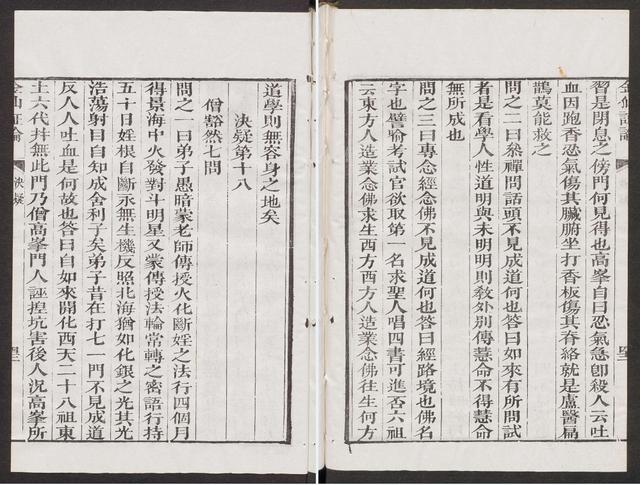 道學則無容身之地矣
決疑第十八
僧豁然七問
問之一曰弟子愚暗蒙老師傳授火化斷婬之法行四個月
得景海中火發對斗明星又蒙傳授法輪常轉之密語行持
五十日婬根自斷永無生機反照北海猶如化銀之光其光
浩蕩射目自知成舍利子矣弟子昔在打七一門不見成道
反人人吐血是何故也答曰自如來開化西天二十八祖東
土六代幷無此門乃僧高峯門人誣揑坑害後人況高峯所
金仙證論
決疑
金仙證論
習是閉息之傍門何見得也高峯自曰忍氣急卽殺人云吐
血因跑香忍氣傷其臟腑坐打香板傷其脊絡就是盧醫扁
鵲莫能救之
問之二曰叅禪問話頭不見成道何也答曰如來有所問試
者是看學人性道明與未明明則敎外別傳慧命不得慧命
無所成也
問之三曰專念經念佛不見成道何也答曰經路境也佛名
字也譬喻考試官欲取第一名求聖人唱四書可進否六祖
云東方人造業念佛求生西方西方人造業念佛往生何方